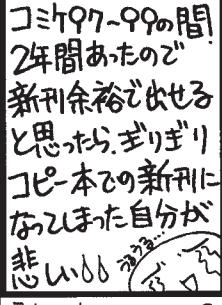 コミケ97～99の間
2年間あったので
新刊余裕で出せる
と思ったら、ぎりぎり
コピー本での新刊に
なってしまった自分が
悲しい
うるうる…